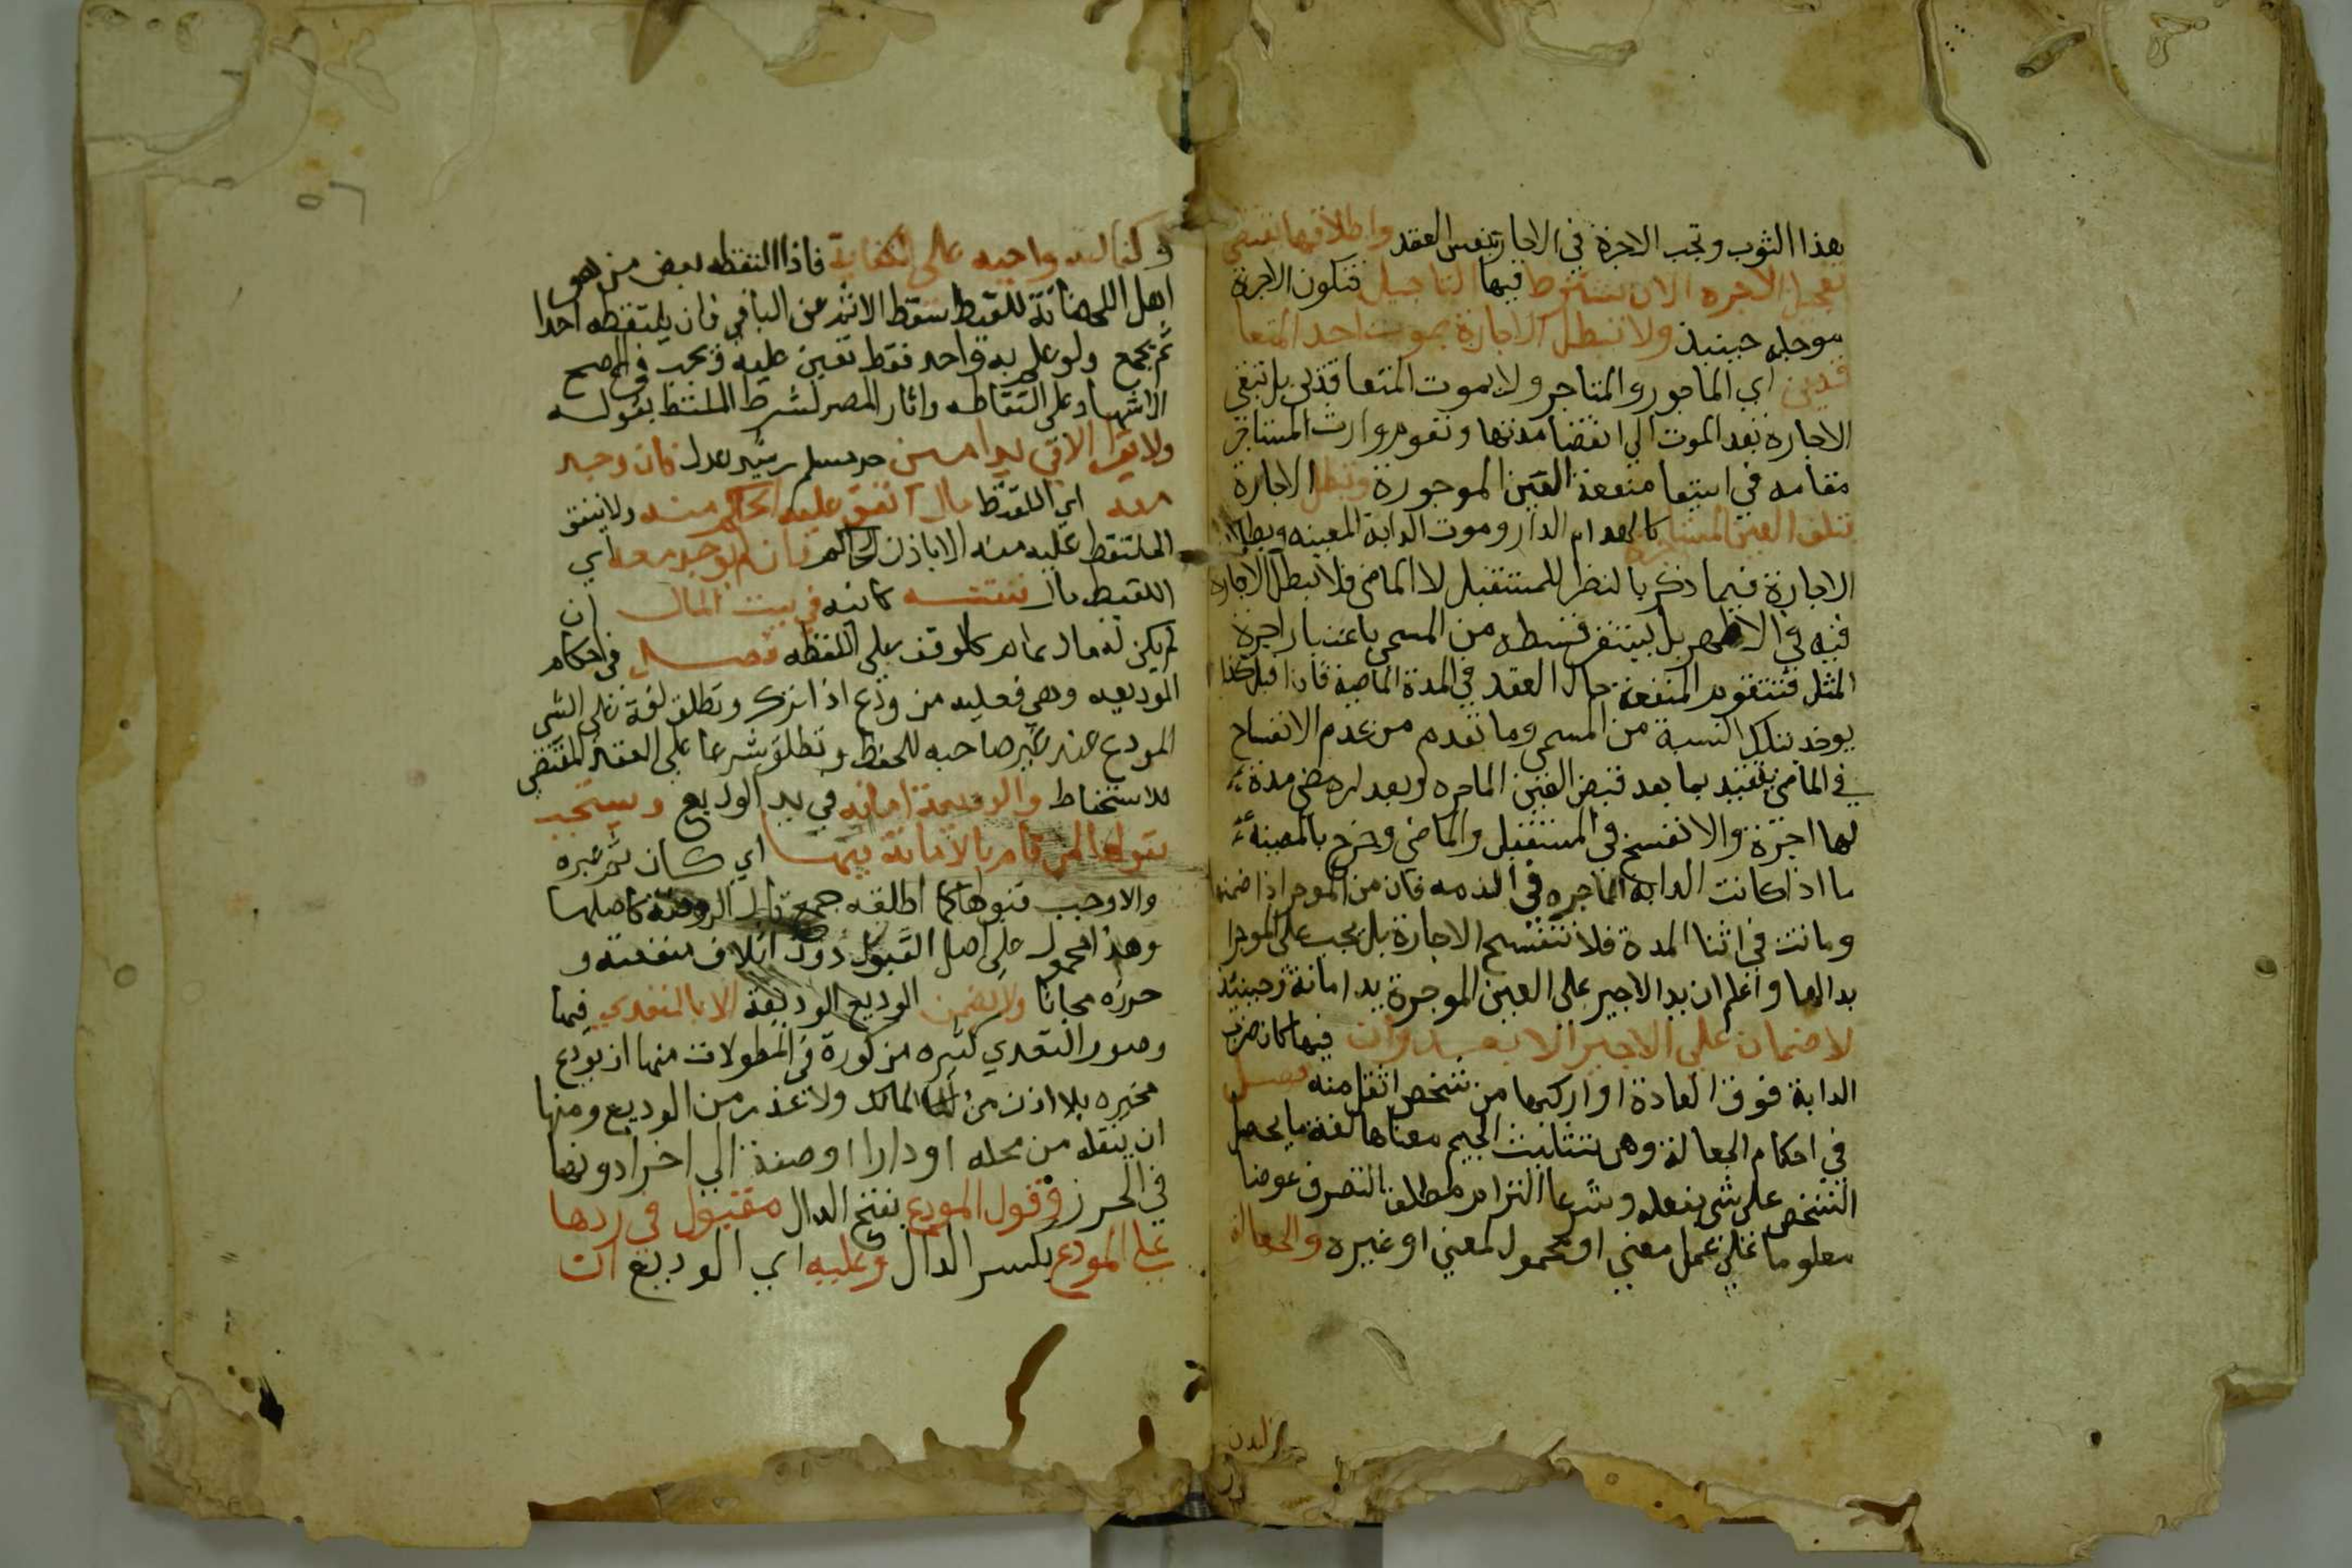 هذا الثوب وتجب الاجرة في الاجارة بنفس العقد واطلاقها يقتضي
تعجيل الاجره الا ان يشترط فيها التاجيل فتكون الاجرة
موجله حينيذ ولا تبطل الاجارة بموت احد المتعا
قدين اي الماجور والمتاجر ولا بموت المتعاقدين بل تبقى
الاجاره بعد الموت الي انقضا مدتها ويقوم وارث المستاجر
مقامه في استيفا منفعة العين الموجورة وتبطل الاجارة
بتلف العين المستاجرة كانهدام الدار وموت الدابة المعينه وبطلان
الاجارة فيما ذكر بالنظر للمستقبل لا الماضي فلا تبطل الاجارة
فيه في الاظهر بل يستقر قسطه من المسمى باعتبار اجرة
المثل فتتقوم المنفعة حال العقد في المدة الماضية فاذا قيل كذا
يوخذ بتلك النسبة من المسمى وما تقدم من عدم الانفساخ
في الماضي مقيد بما بعد قبض العين الماجره وبعد مضي مدة
لها اجرة والا انفسخ في المستقبل والماضي وخرج بالمعينة
ما اذا كانت الدابه الماجره في الذمه فان من الموجر اذا ضمنها
وماتت في اثنا المدة فلا تنفسخ الاجارة بل يجب على الموجر
بدالها واعلم ان يد الاجير على العين الموجرة يد امانة وحينيذ
لا ضمان علي الاجير الا بعدوان فيها كان ضرب
الدابة فوق العادة او اركبها من شخص اثقل منه فصل
في احكام الجعالة وهي بتثليث الجيم معناها لغة ما يجعل
الشخص على شي يفعله وشرعا التزام مطلق التصرف عوضا
معلوما على عمل معين او مجهول لمعين او غيره والجعالة
وكفالته واجبه على الكفاية فاذا التقطه بعض من هو
اهل الحضانة للقيط سقط الاثم عن الباقي فان لم يلتقطه احدا
ثم الجميع ولو علم به واحد فقط تعين عليه ويجب في الاصح
الاشهاد على التقاطه واشار المصر لشرط الملتقط بقوله
ولا يقر الا في يد امين حر مسلم رشيد عدل فان وجد
معه اي اللقيط مال انفق عليه الحاكم منه ولا ينفق
الملتقط عليه منه الا باذن الحاكم فان لم يوجد معه اي
اللقيط مال فنفقته كائنه في بيت المال ان
لم يكن له مال عام كالوقف على اللقطه فصل في احكام
الوديعه وهي فعليه من ودع اذا ترك وتطلق لغة على الشي
المودع عند غير صاحبه للحفظ وتطلق شرعا على العقد المقتضي
للاستحفاظ والوديعة امانه في يد الوديع ويستحب
قبولها لمن قام بالامانة فيها اي كان ثم غيره
والا وجب قبولها كما اطلقه جمع قال في الروضة كاصلها
وهذا محمول على اصل القبول دون اتلاف منفعته و
حرزه مجانا ولا يضمن الوديع الوديعة الا بالتعدي فيها
وصور التعدي كثيره مذكورة في المطولات منها ان يودع
غيره بلا اذن من المالك ولا عذر من الوديع ومنها
ان ينقله من محله او دارا او صفة الي اخرا دونها
في الحرز وقول المودع بفتح الدال مقبول في ردها
على المودع بكسر الدال وعليه اي الوديع ان